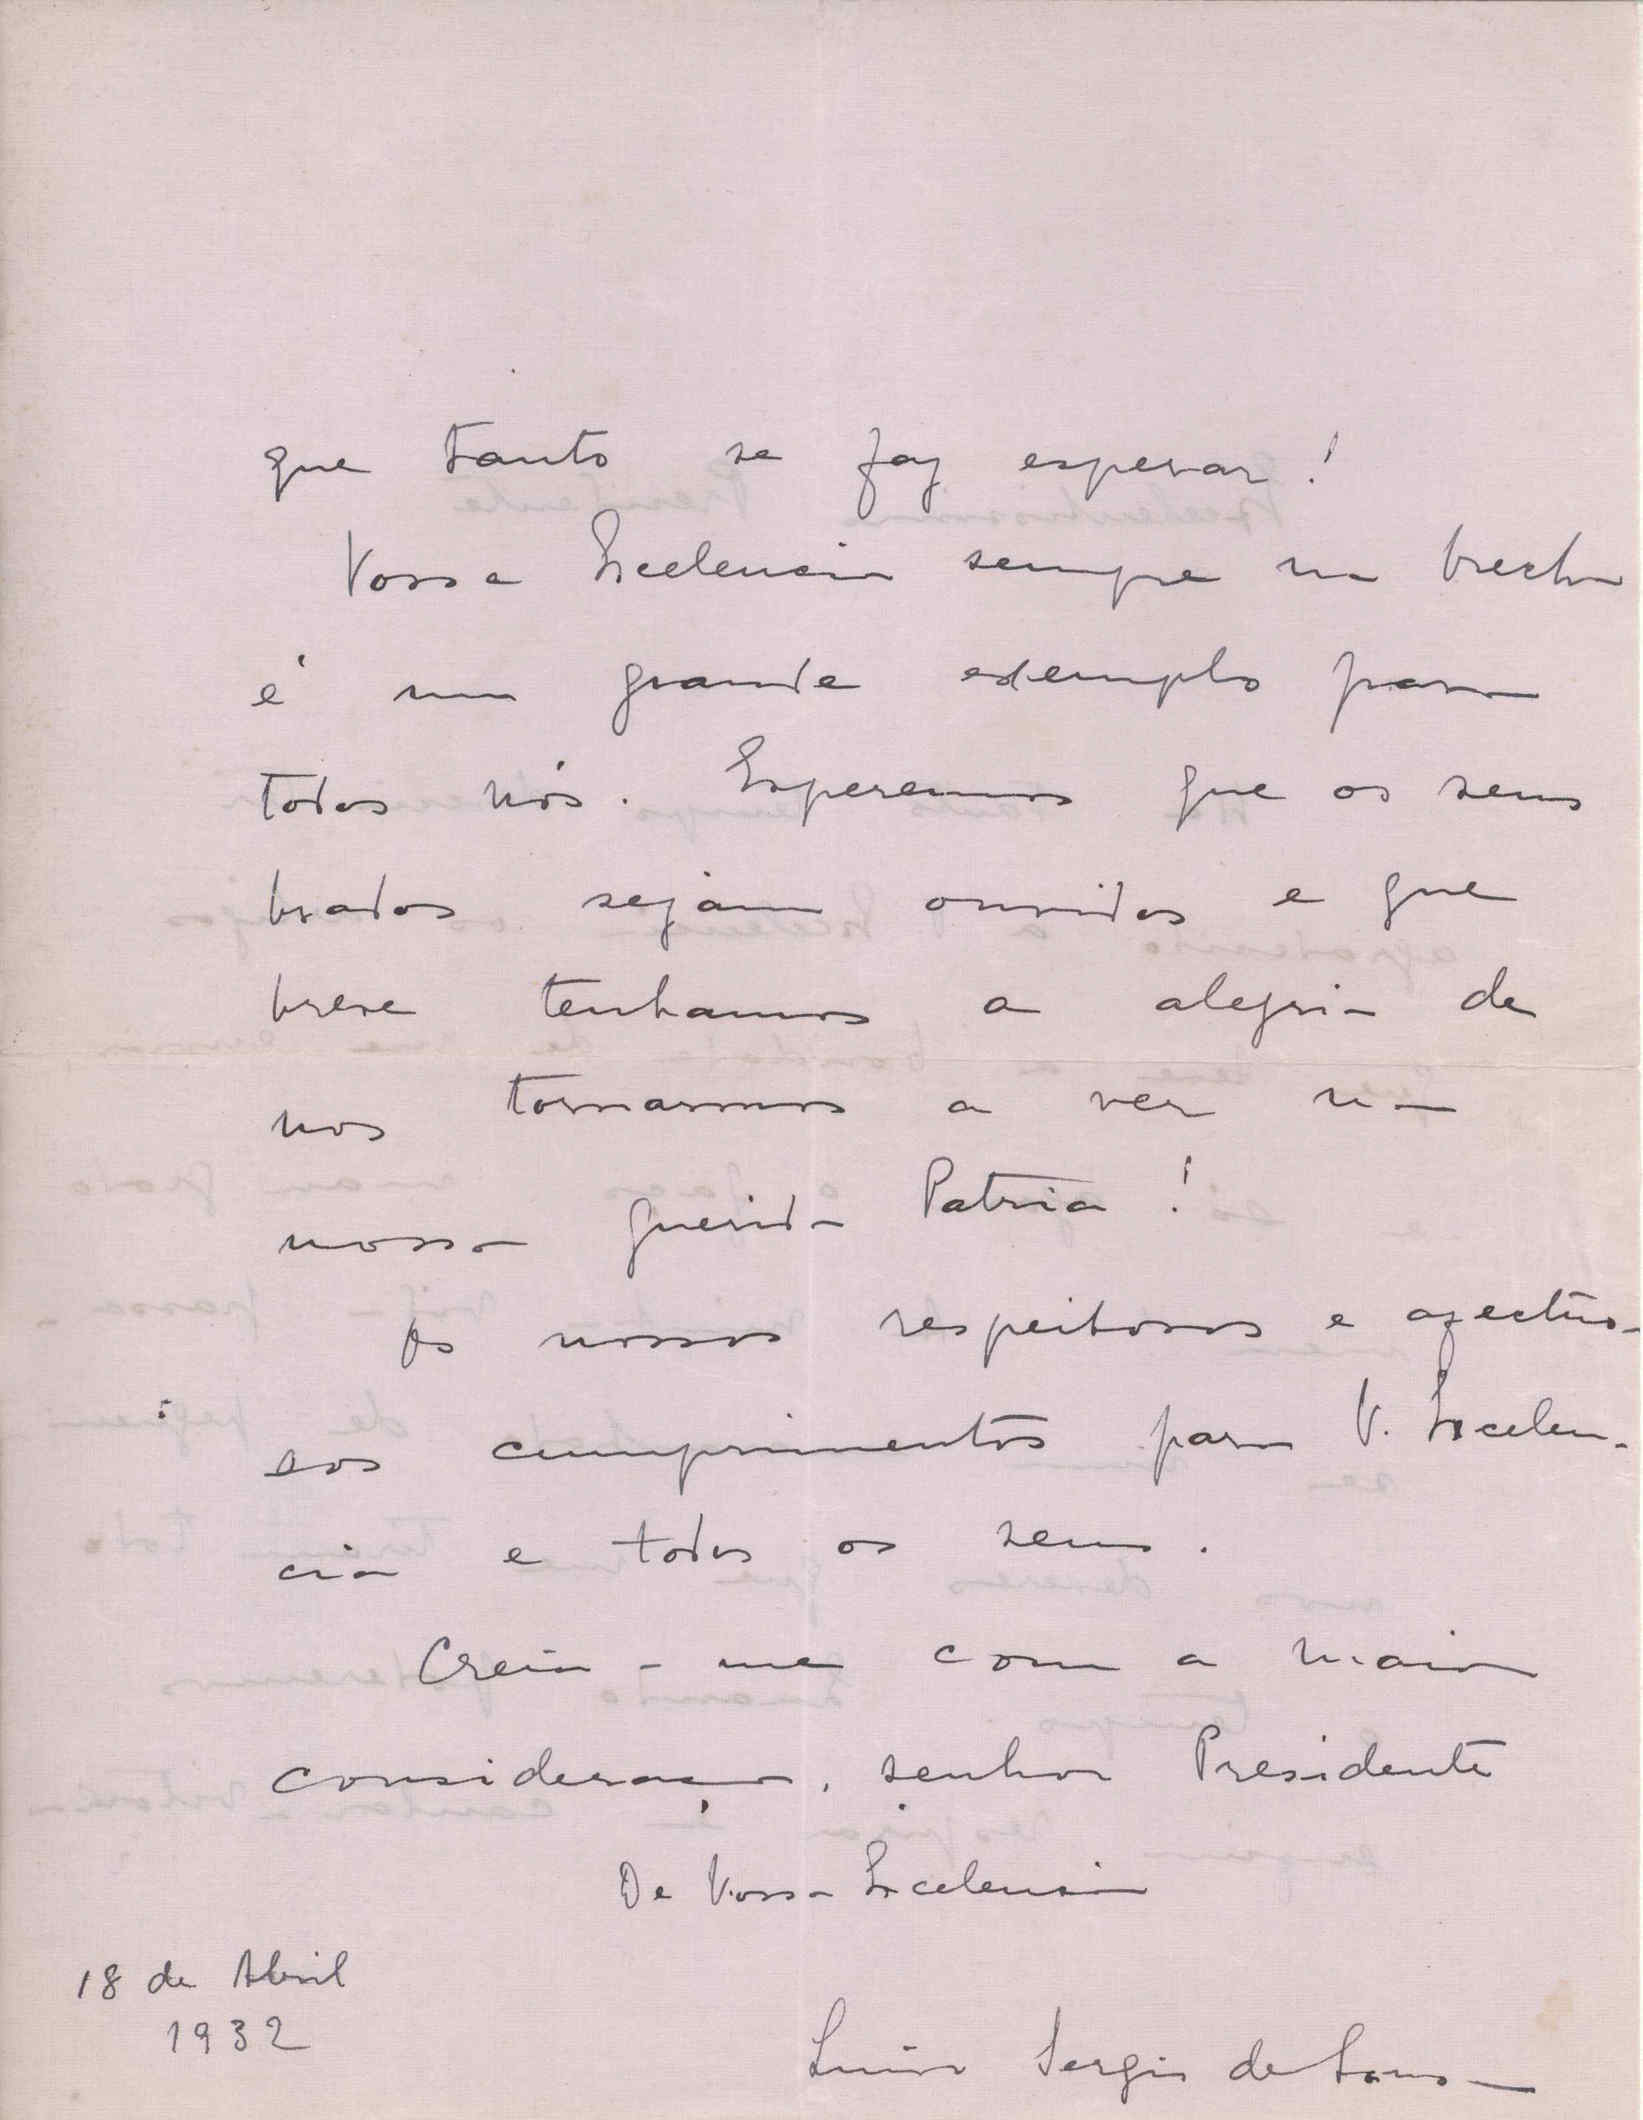 que tanto se faz esperar!
Vossa Excelencia sempre na brecha
é um grande exemplo para
todos nós. Esperemos que os seus
brados sejam ouvidos e que
breve tenhamos a alegria de
nos tornarmos a ver na
nossa querida Patria!
Os nossos respeitosos e afectuo-
sos cumprimentos para V. Excelen-
cia e todos os seus.
Creia-me com a maior
consideração, senhor Presidente
De Vossa Excelencia
18 de Abril
1932
Luiza Sergio de Sousa